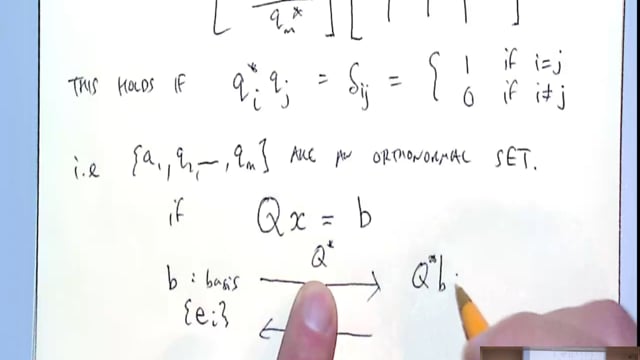 q_m^*
THIS HOLDS IF q_i^* q_j = δ_ij = { 1 if i=j
0 if i≠j
i.e {a_1, q_2, —, q_m} ARE AN ORTHONORMAL SET.
if Qx = b
Q^*
b : basis ⟶ Q^*b :
{e_i} ⟵